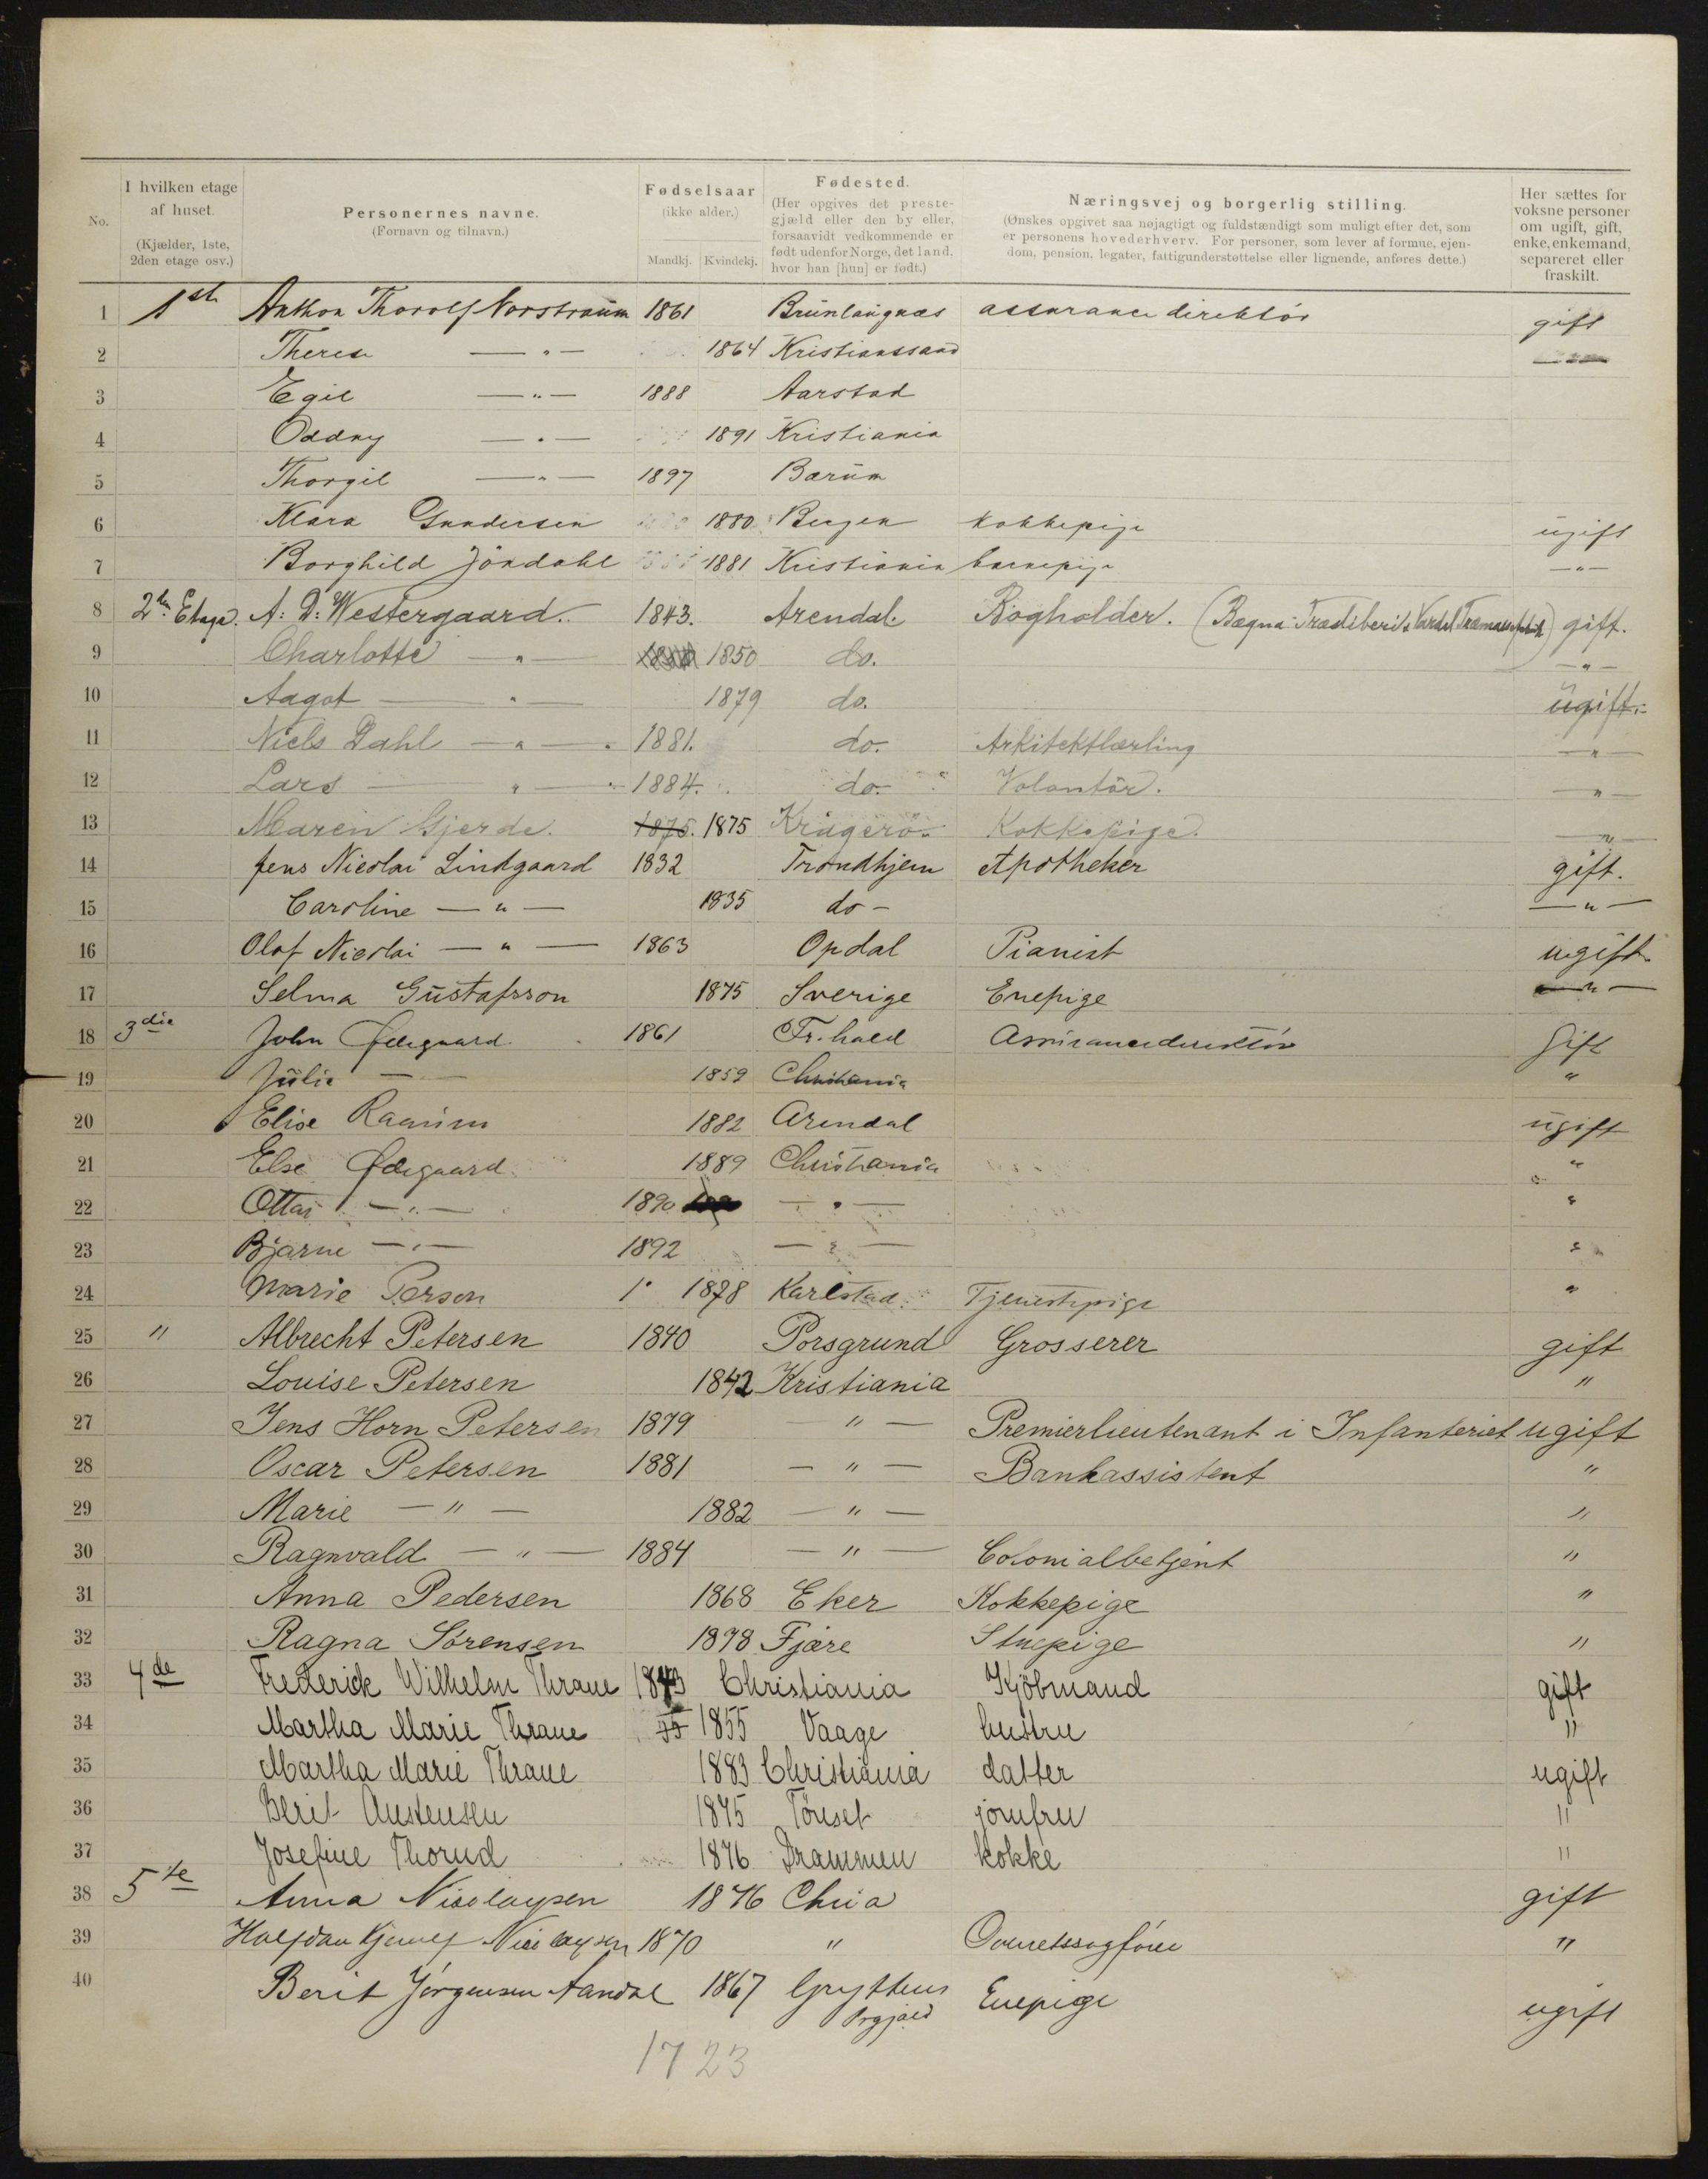 No.
I hvilken etage af huset.
(Kjælder, 1ste, 2den etage osv.)
Personernes navne.
(Fornavn og tilnavn.)
Fødselsaar
(ikke alder.)
Mandkj. Kvindekj.
Fødested.
(Her opgives det prestegjæld eller den by eller, forsaavidt vedkommende er født udenfor Norge, det land, hvor han [hun] er født.)
Næringsvej og borgerlig stilling.
(Ønskes opgivet saa nøjagtigt og fuldstændigt som muligt efter det, som er personens hovederhverv. For personer, som lever af formue, ejendom, pension, legater, fattigunderstøttelse eller lignende, anføres dette.)
Her sættes for voksne personer om ugift, gift, enke, enkemand, separeret eller fraskilt.
1 1st Anthon Thorolf Norstraum 1861 Brunlaugnæs assurance direktör gift
2 Therese —"— 1864 Kristianssand
3 Egil —"— 1888 Aarstad
4 Oddny —"— 1891 Kristiania
5 Thorgil —"— 1897 Bærum
6 Klara Gundersen 1880 Bergen kokkepige ugift
7 Borghild Jöndahl 1881 Kristiania barnepige —"—
8 2den Etage. A: D: Westergaard. 1843. Arendal. Bogholder. (Bægna Træsliberi & gift.
9 Charlotte —"— 1850 do. —"—
10 Aagot —"— 1879 do. ugift.
11 Niels Dahl —"— 1881. do. Arkitektlærling —"—
12 Lars —"— 1884. do. Volontör. —"—
13 Maren Gjerde. 1875. 1875 Kragerö. Kokkepige. —"—
14 Jens Nicolai Lindgaard 1832 Trondhjem Apotheker gift.
15 Caroline —"— 1835 do — —"—
16 Olaf Nicolai —"— 1863 Opdal Pianist ugift.
17 Selma Gustafsson 1875 Sverige Enepige —"—
18 3die John Ødegaard 1861 Fr.hald Assurancedirektör gift
19 Julie — — 1859 Christiania "
20 Elise Raanum 1882 Arendal ugift
21 Else Ødegaard 1889 Christiania "
22 Ottar —"— 1890 —"— "
23 Bjarne —"— 1892 —"— "
24 Marie Person 1878 Karlstad. Tjenestepige "
25 " Albrecht Petersen 1840 Porsgrund Grosserer gift
26 Louise Petersen 1842 Kristiania "
27 Jens Horn Petersen 1879 " — Premierlieutenant i Infanteriet ugift
28 Oscar Petersen 1881 — " — Bankassistent "
29 Marie — " — 1882 — " — "
30 Ragnvald — " — 1884 — " — Colonialbetjent "
31 Anna Pedersen 1868 Eker Kokkepige "
32 Ragna Sørensen 1878 Fjære Stuepige "
33 4de Frederick Wilhelm Thrane 1843 Christiania Kjöbmand gift
34 Martha Marie Thrane 55 1855 Vaage hustru "
35 Martha Marie Thrane 1883 Christiania datter ugift
36 Berit Austensen 1875 Tönset jomfru "
37 Josefine Thorud 1876 Drammen kokke "
38 5te Anna Nicolaysen 1876 Chria gift
39 Halfdan Nicolaysen 1870 " Overretssagförer "
40 Berit Jörgensen Aandal 1867 Gryttens Prgjæld Enepige ugift
17 23